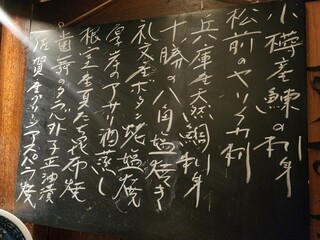 小樽産鰊の刺身
松前のヤリイカ刺
兵庫産天然鯛刺身
十勝の八角塩焼き
礼文産ボタン蛯塩焼
厚岸のアサリ酒蒸し
根室産真だち昆布焼
歯舞のタラバ外子正油漬
佐賀産グリーンアスパラ焼